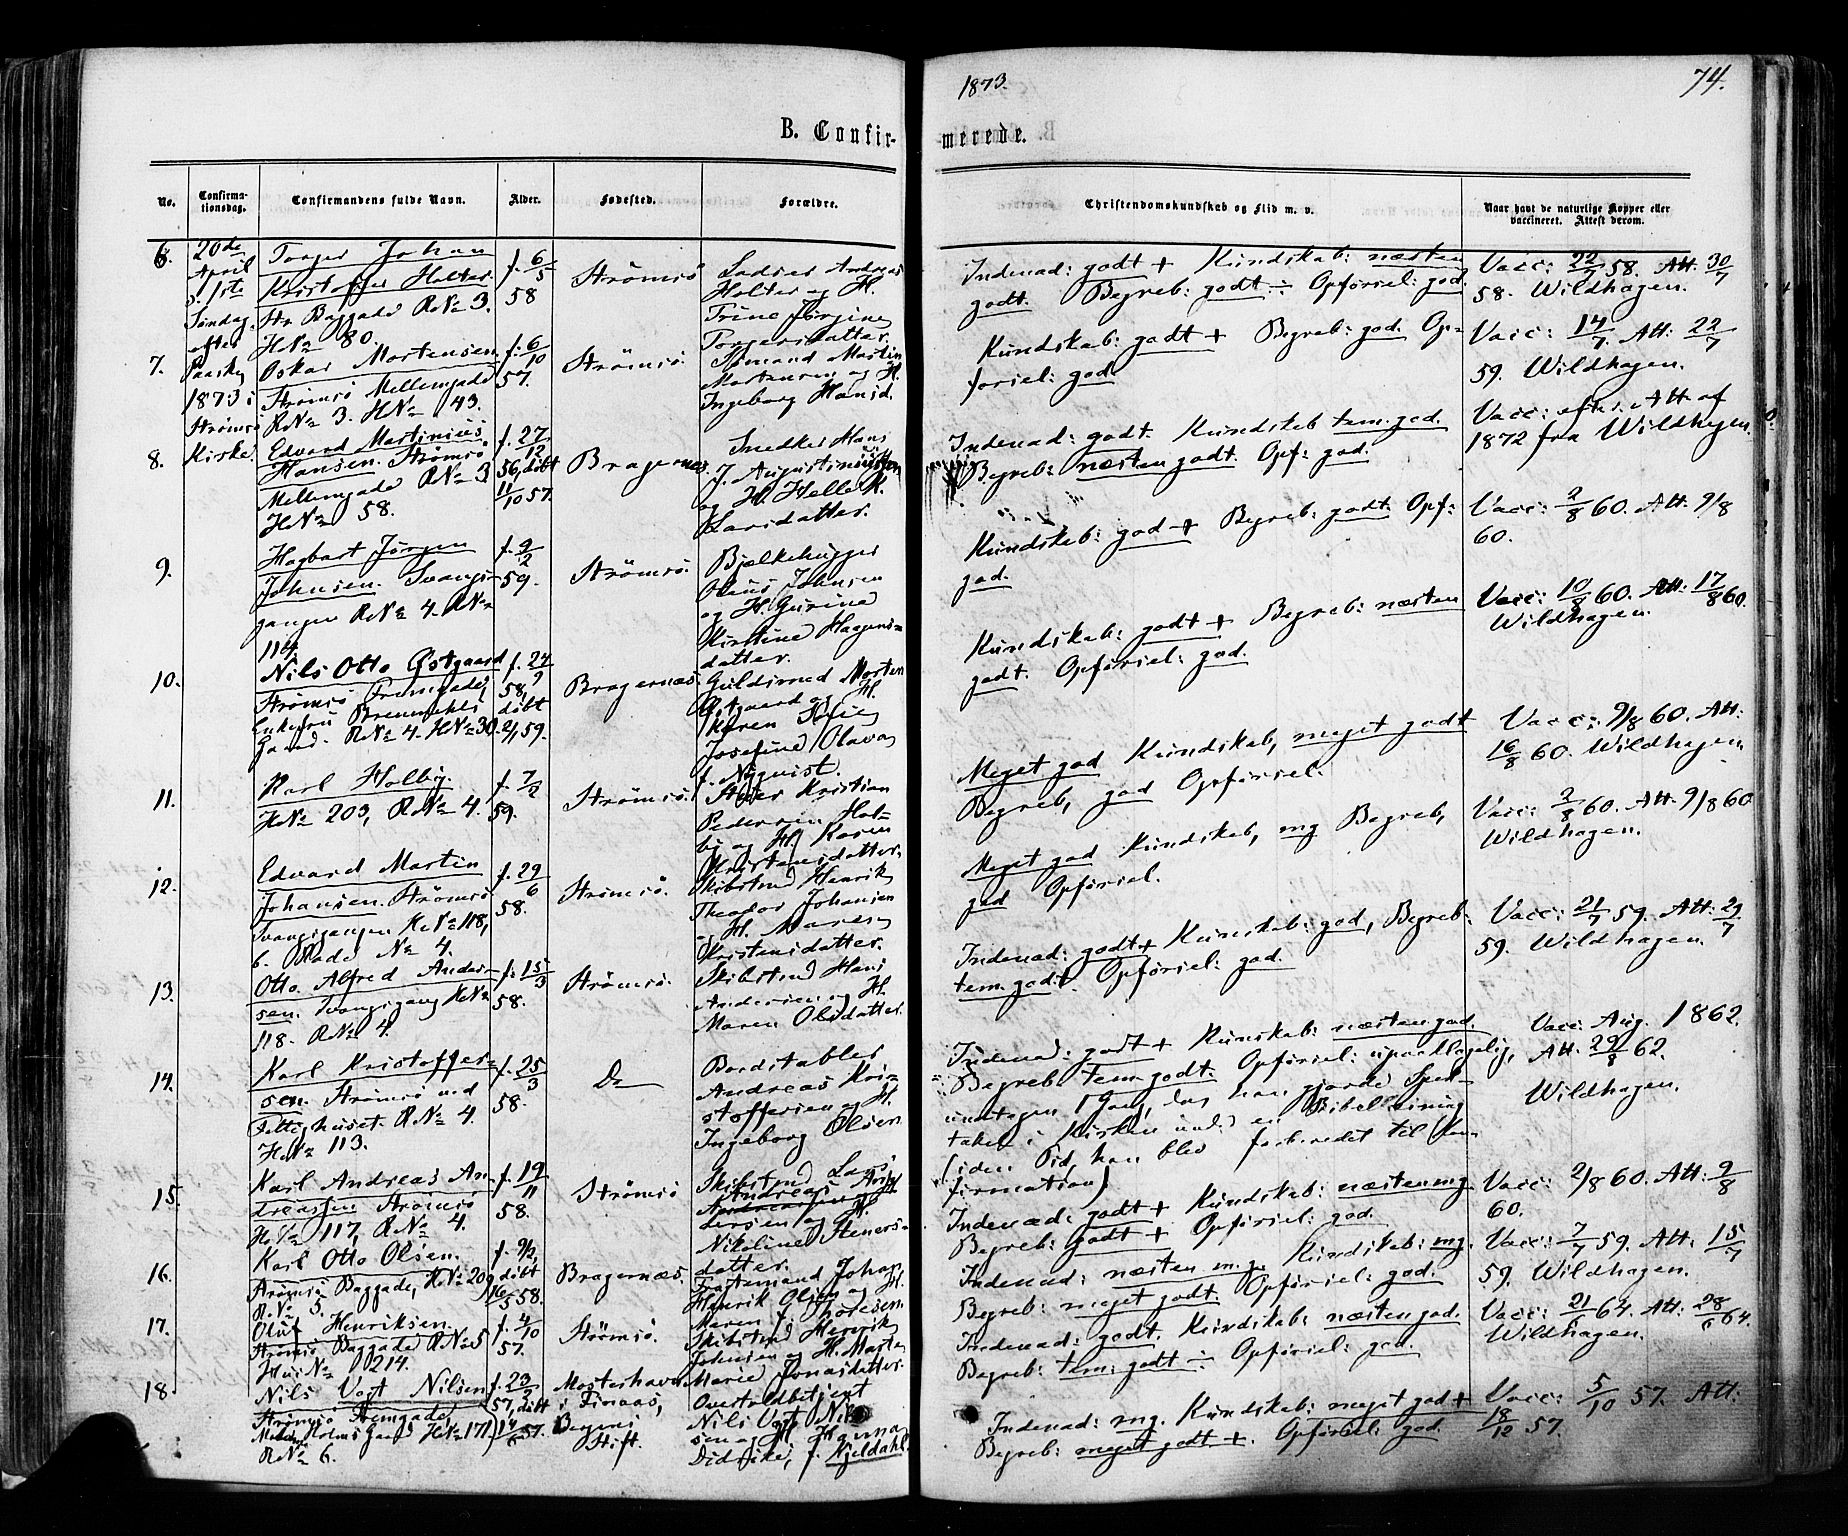 1873.
74.
B. Confir-
merede.
No.
Confirma-
tionsdag.
Confirmandens fulde Navn.
Alder.
Fødested.
Forældre.
Christendomskundskab og Flid m. v.
Naar havt de naturlige Kopper eller
vaccineret. Attest derom.
20de
April
1ste
Søndag
efter
Paaske
1873 i
Strømsø
Kirke.
6.
Torger Johan
Kristoffer Holter.
Str. Baggade R.No 3.
H.No 80.
f. 6/5
58
Strømsø
Andreas
Holter og H.
Trine Jørgine
Torgersdatter.
Indenad: godt + Kundskab: næsten
godt. Begreb: godt ÷ Opførsel: god.
Vacc: 22/7 58. Att. 30/7
58. Wildhagen.
7.
Oskar Mortensen
Strømsø Mellemgade
R.No 3. H.No 43.
f. 6/10
57.
Strømsø
Martin
Mortensen og H.
Ingeborg Hansd.
Kundskab: godt + Begreb: god Op-
førsel: god
Vacc: 14/7 Att: 22/7
59. Wildhagen.
8.
Edvard Martinius
Hansen. Strømsø
Mellemgade R.No 3
H.No 58.
f. 27/12
56, døbt
11/10 57.
Bragernes.
Snedker Hans
J. Augustinussen
og H. Helle K.
Larsdatter.
Indenad: godt. Kundskab tem. god.
Begreb: næsten godt. Opf: god.
Vacc: efter Att. af
1872 fra Wildhagen.
9.
Hagbart Jørgen
Johnsen. Tvangs-
gangen R.No 4. H.No
114.
f. 9/2
59.
Strømsø.
Bjelkehugger
Olaus Johnsen
og H. Gurine
Kirstine Haagens-
datter.
Kundskab: god + Begreb: godt Opf:
god.
Vacc: 2/8 60. Att. 9/8
60.
10.
Nils Otto Østgaard
Strømsø Tremgade,
Enkefru
Gaard. R.No 4. H.No 30.
f. 24/9
58,
døbt
2/1 59.
Bragernæs.
Guldsmed Morten
Østgaard og H.
Karen Sofie
Josefine Olava
f. Nyqvist.
Kundskab: godt + Begreb: næsten
godt. Opførsel: god.
Vacc: 10/8 60. Att: 17/8 60.
Wildhagen.
11.
Karl Holby.
H.No 203, R.No 4.
f. 7/2
59.
Strømsø.
Kristian
Pedersen Hol-
by og H. Karen
Kristensdatter.
Meget god Kundskab, meget godt
Begreb, god Opførsel.
Vacc: 9/8 60. Att:
16/8 60. Wildhagen.
12.
Edvard Martin
Johansen. Strømsø
Tvangsgangen H.No 118,
6. Rode No 4.
f. 29/6
58.
Strømsø.
Skibstmd Henrik
Theodor Johansen
og H. Maren
Kristensdatter.
Meget god Kundskab, mg Begreb,
god Opførsel.
Vacc: 2/8 60. Att. 9/8 60
Wildhagen.
13.
Otto Alfred Ander-
sen. Tvangsgang H.No
118. R.No 4.
f. 15/3
58.
Strømsø.
Skibstmd Hans
Andersen og H.
Maren Olsdatter.
Indenad: godt + Kundskab: god, Begreb:
tem. godt. Opførsel: god.
Vacc: 21/7 59. Att: 29/7
59. Wildhagen.
14.
Karl Kristoffer-
sen. Strømsø ved
Fattighuset. R.No 4.
H.No 113.
f. 25/3
58.
Do
Bordstabler
Andreas Kri-
stoffersen og H.
Ingeborg Olsen
Indenad: godt + Kunskab: næsten god.
Begreb tem. godt. Opførsel: upaaklagelig,
undtagen 1 Gang, da han gjorde Spek-
takel i Kirken under en Bibellæsning
(siden Tid, han blev forberedet til Kon-
firmation)
Vacc: Aug. 1862.
Att. 29/8 62.
Wildhagen.
15.
Karl Andreas An-
dreassen Strømsø
H.No 117, R.No 4.
f. 19/11
58.
Strømsø
Skibstmd Lars
Andreas An-
dersen og H.
Nikoline Steners-
datter.
Indenad: godt + Kundskab: næsten mg
Begreb: godt + Opførsel: god.
Vacc: 2/8 60. Att: 9/8
60.
16.
Karl Otto Olsen.
Strømsø Baggade, H.No 209
R.No 5.
f. 9/2,
døbt
16/5 58.
Bragernæs.
Johan
Henrik Olsen og H.
Maren f. Thoresen
Indenad: næsten mg. Kundskab: mg.
Begreb: meget godt. Opførsel: god.
Vacc: 7/7 59. Att: 15/7
59. Wildhagen.
17.
Oluf Henriksen.
Strømsø Baggade R.No 5
Hus No 214.
f. 4/10
57.
Strømsø.
Skibstmd Henrik
Johnsen og H. Marte
Marie Jonasdatter.
Indenad: godt. Kundskab: næsten god.
Begreb: tem. godt ÷ Opførsel: god.
Vacc: 21/6 64. Att: 28/6 64.
Wildhagen.
18.
Nils Vogt Nilsen
Strømsø Tremgade
Holms Gaard H.No 171)
R.No 6.
f. 23/2
57, døbt
14/6 57.
Mosterhavn
i Finaas,
Bergens
Stift.
Overtoldbetjent
Nils Vogt Nil-
sen og H.
Didrike, f. Kjeldahl.
Indenad: mg. Kundskab: meget god +
Begreb: meget godt +. Opførsel: god.
Vacc: 5/10 57. Att:
18/12 57.